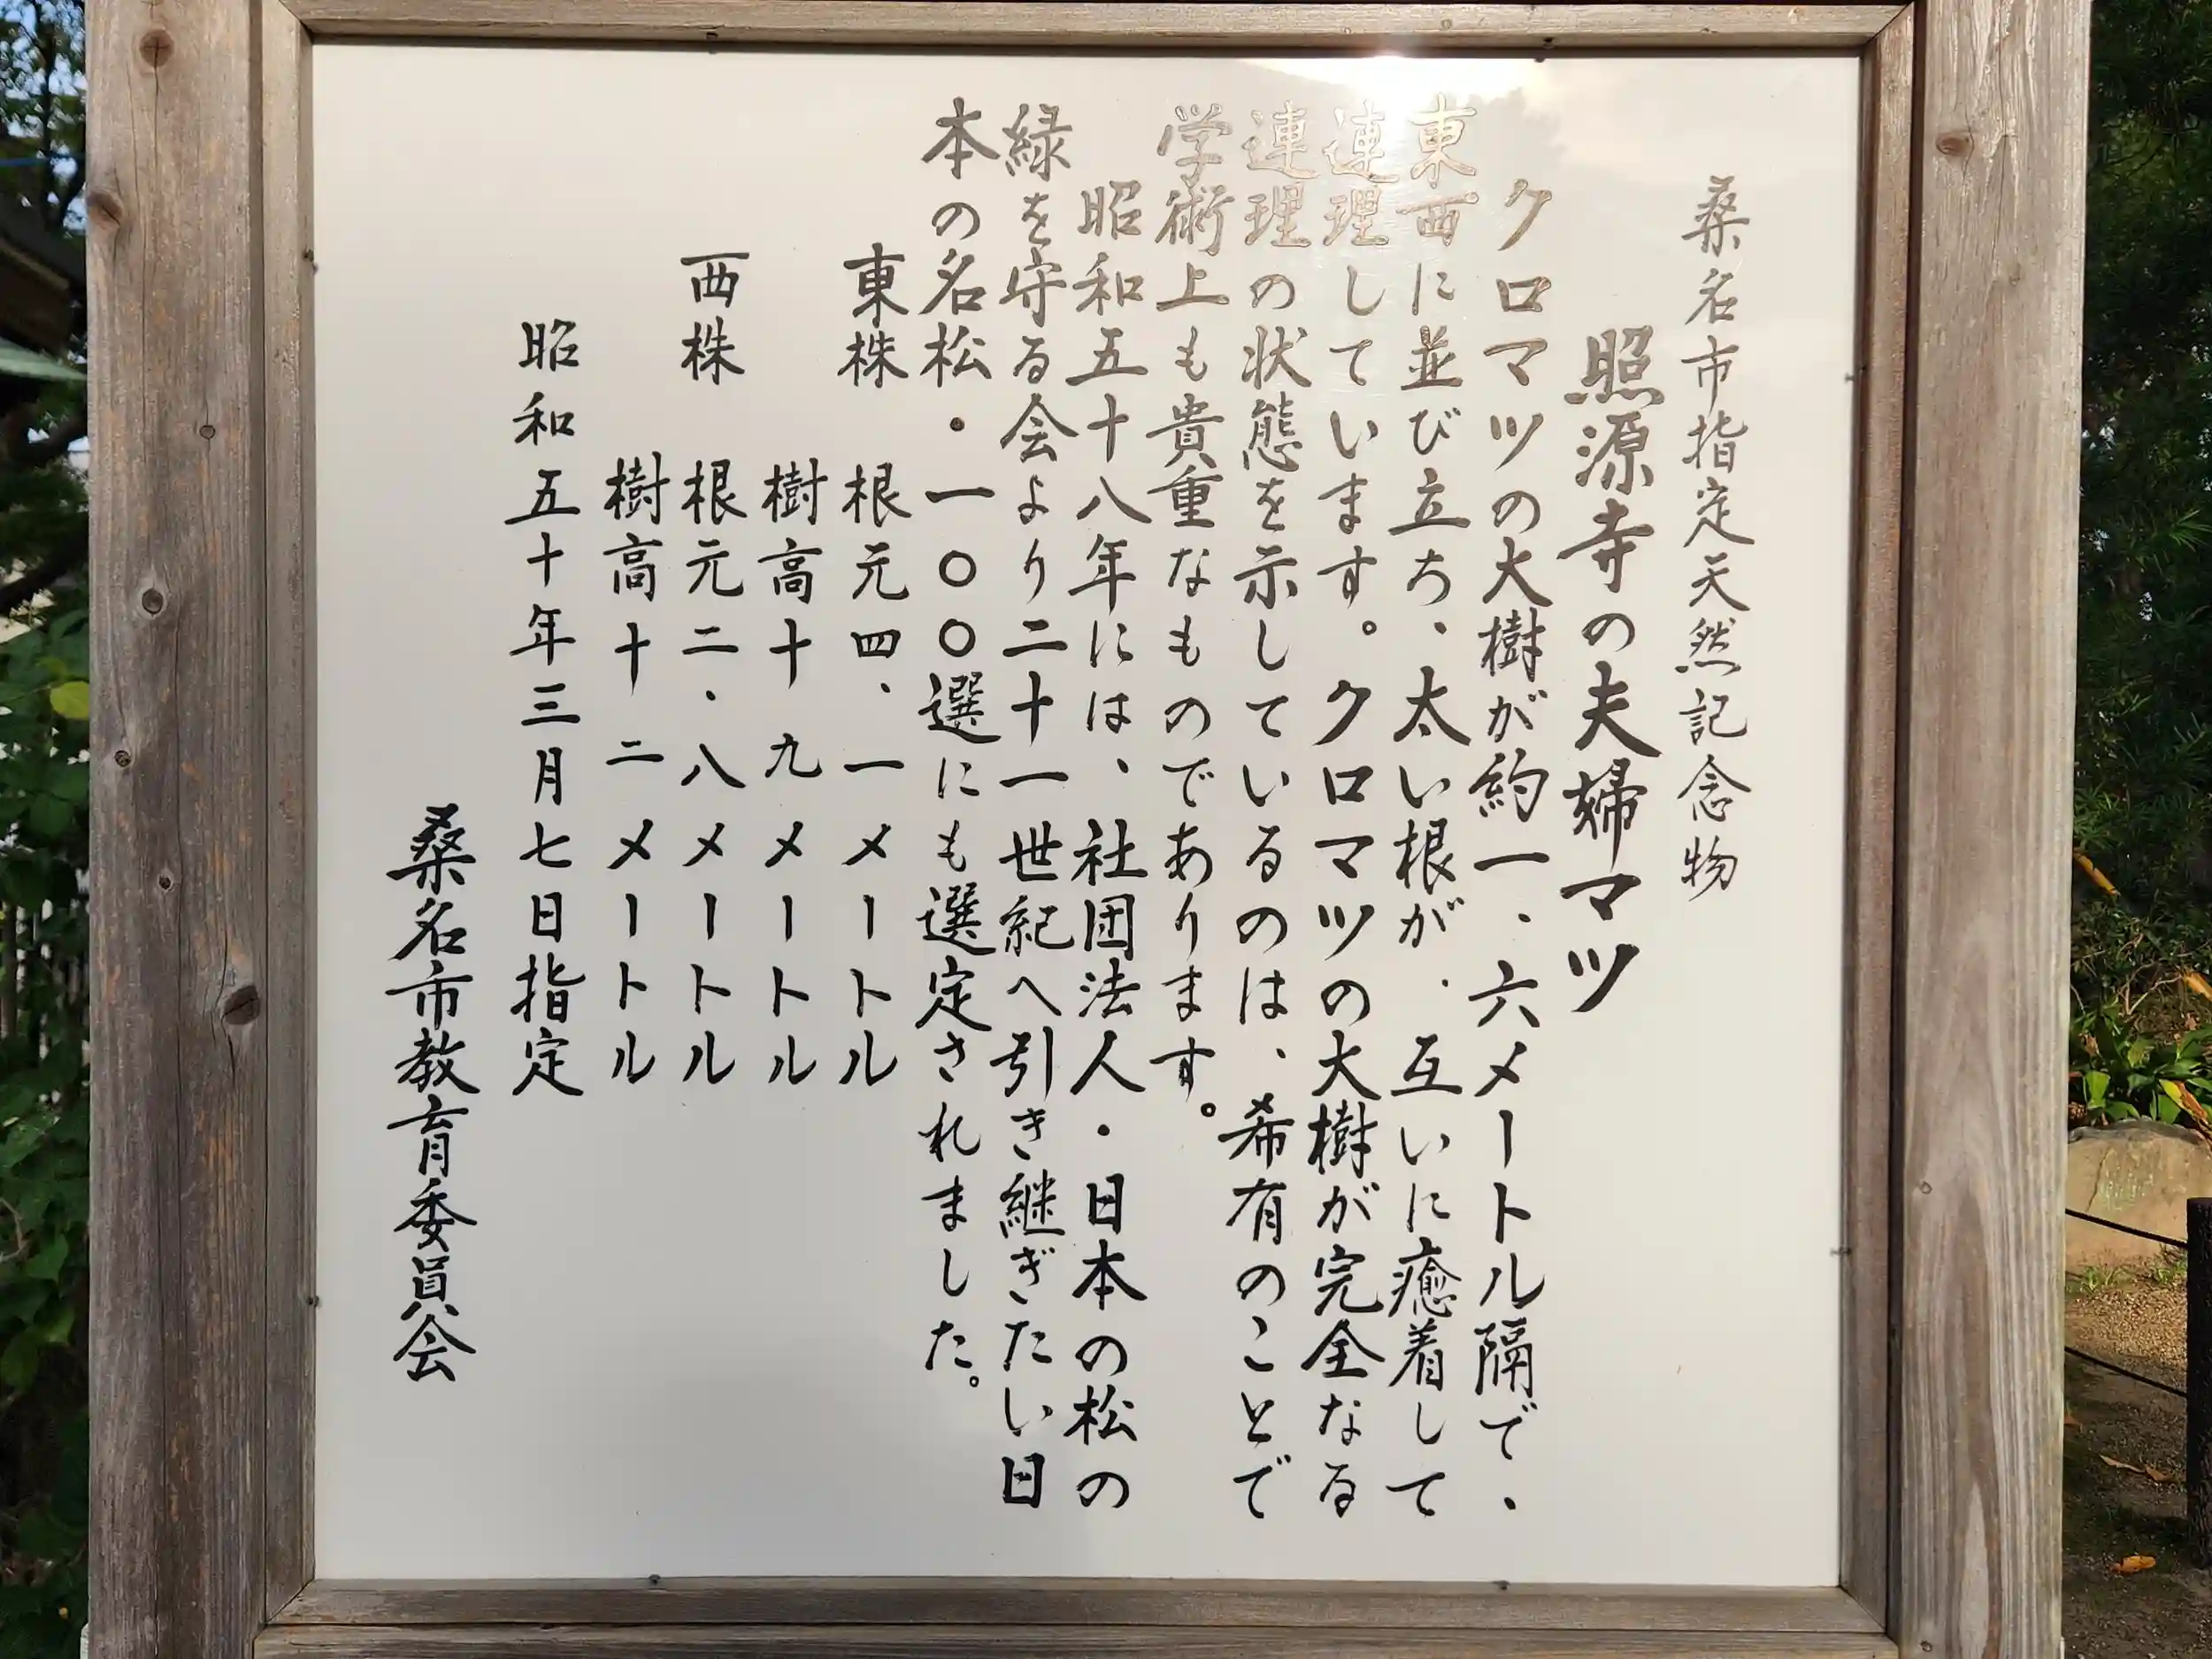 桑名市指定天然記念物
照源寺の夫婦マツ
クロマツの大樹が約一、六メートル隔で、
東西に並び立ち、太い根が、互いに癒着して
連理しています。クロマツの大樹が完全なる
連理の状態を示しているのは、希有のことで
学術上も貴重なものであります。
昭和五十八年には、社団法人・日本の松の
緑を守る会より二十一世紀へ引き継ぎたい日
本の名松・一〇〇選にも選定されました。
東株 根元四、一メートル
樹高十九メートル
西株 根元二・八メートル
樹高十二メートル
昭和五十年三月七日指定
桑名市教育委員会